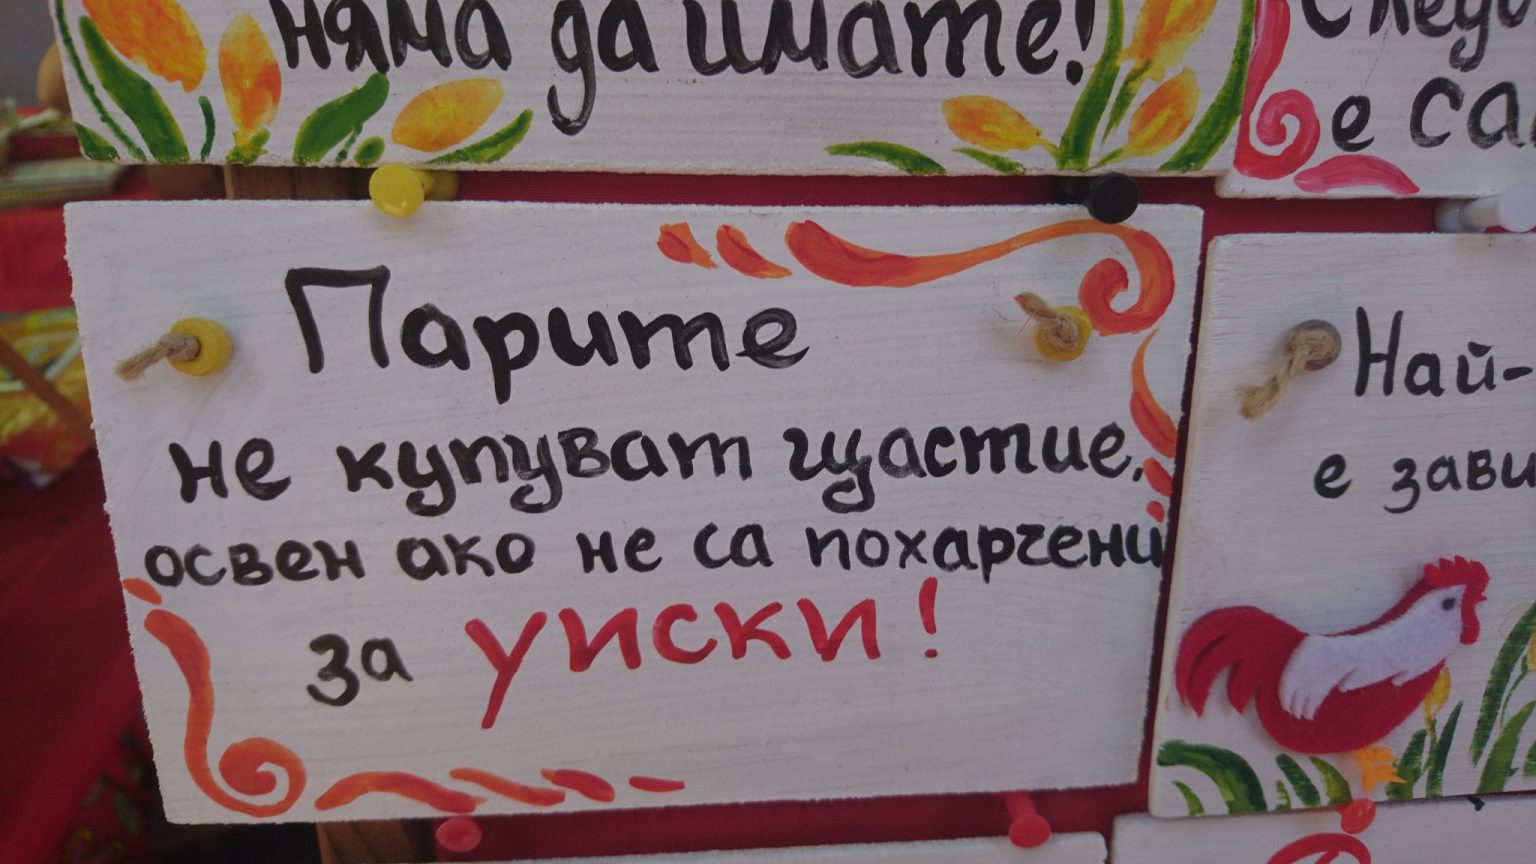 няма да имате!
е
Парите
не купуват щастие,
освен ако не са похарчени
за уиски!
Най-
е